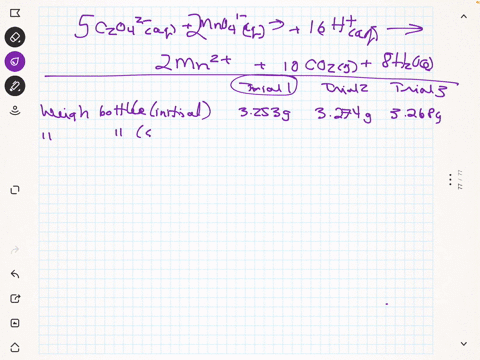 5C₂O₄²⁻(aq) + 2MnO₄¹⁻(aq) → + 16H⁺(aq) →
2Mn²⁺ + 10CO₂(g) + 8H₂O(l)
Trial 1 Trial 2 Trial 3
Weigh bottle (initial) 3.253g 3.274g 3.268g
" " (
77 / 77